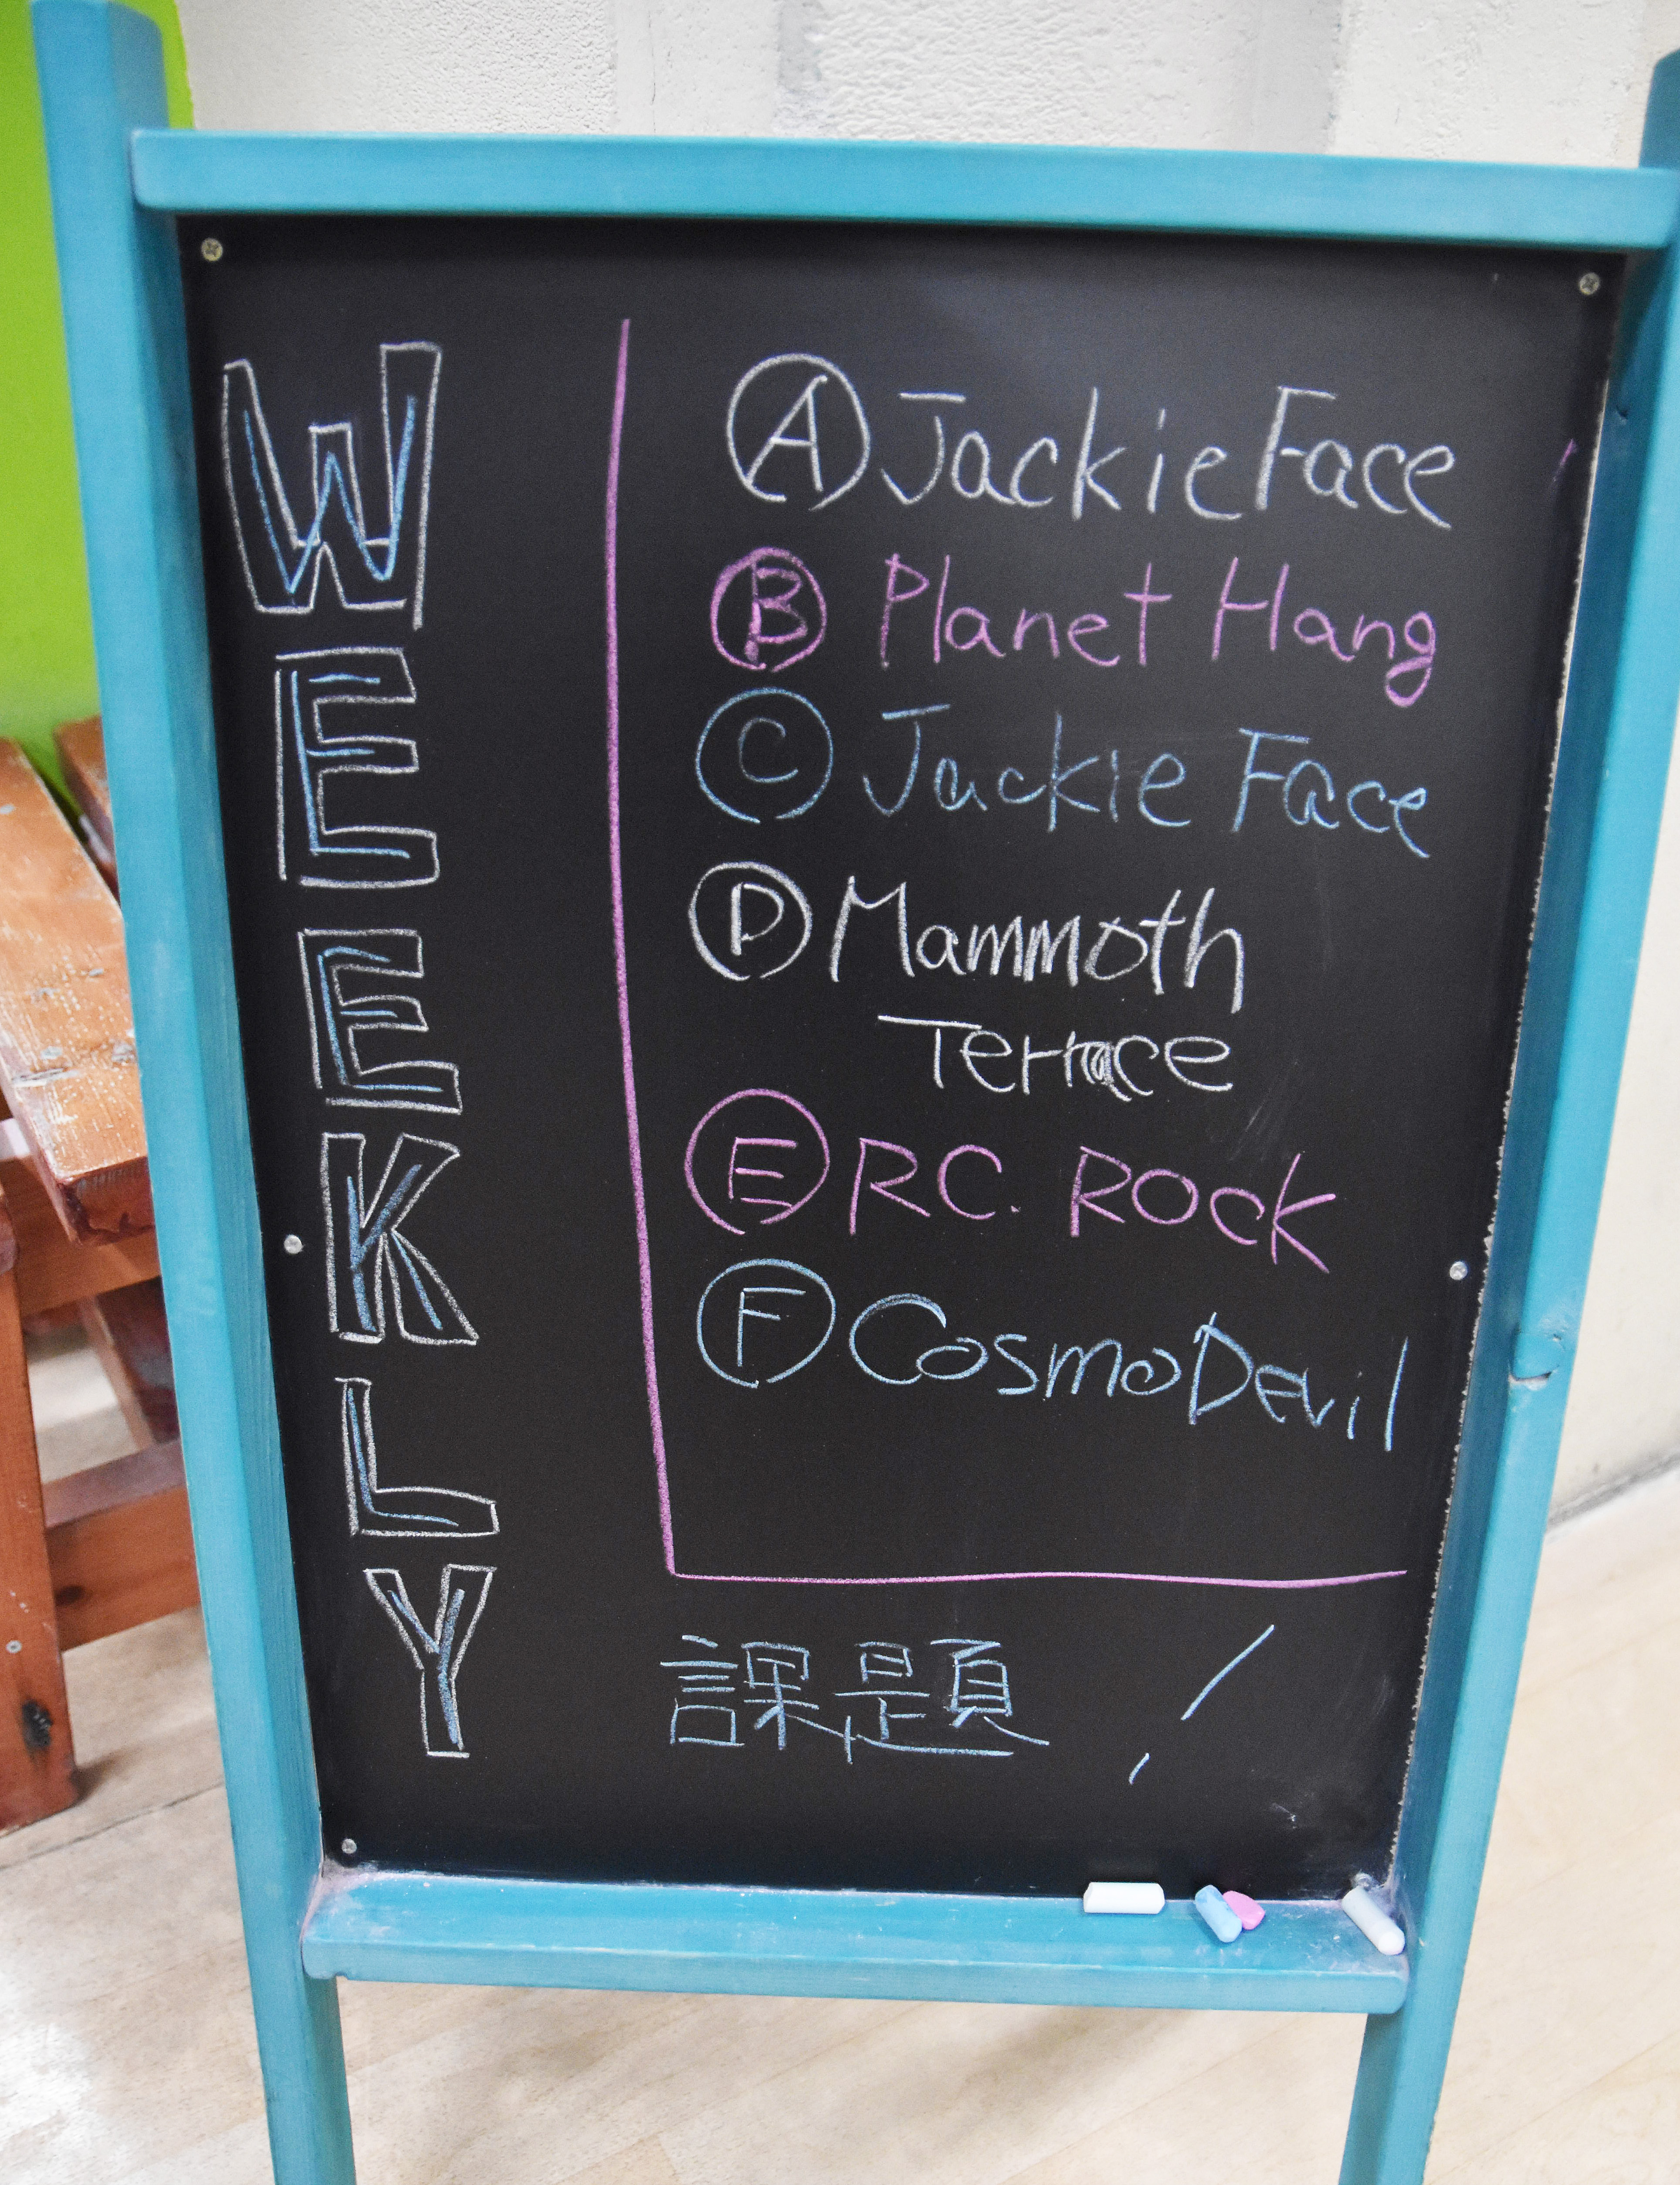 WEEKLY
Ⓐ Jackie Face
Ⓑ Planet Hang
Ⓒ Jackie Face
Ⓓ Mammoth
Terrace
Ⓔ RC. ROCK
Ⓕ Cosmo Devil
課題!